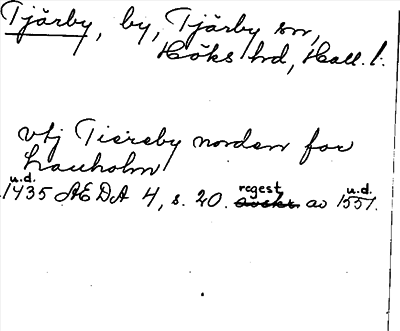 Tjärby, by, Tjärby sn,
Höks hd, Hall. l.
vtj Tiereby norden for
Lauholm
u.d. 1435 AEDA 4, s. 20. regest av u.d. 1551.